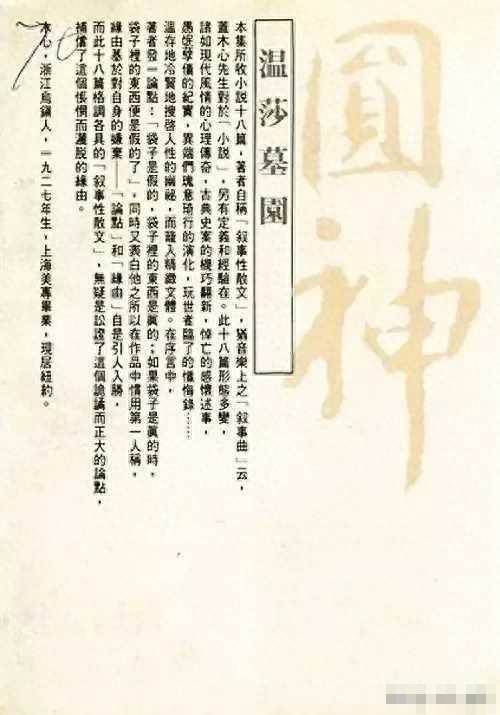 圓神
温莎墓園
本集所收小說十八篇，著者自稱「敘事性散文」，猶音樂上之「敘事曲」云，
蓋木心先生對於「小說」，另有定義和經驗在。此十八篇形態多變，
諸如現代風情的心理傳奇，古典史案的機巧翻新，悼亡的感懷述事，
愚妮孽債的紀實，異端們瑰意琦行的演化，玩世者臨了的懺悔錄……
溫存地冷賢地搜啓人性的幽祕，而籠入精緻文體。在序言中，
著者發一論點：「袋子是假的，袋子裡的東西是眞的；如果袋子是眞的時，
袋子裡的東西便是假的了」，同時又表白他之所以在作品中慣用第一人稱，
緣由基於對自身的嫌棄——「論點」和「緣由」自是引人入勝，
而此十八篇格調各具的「敘事性散文」，無疑是訟證了這個詭譎而正大的論點，
補償了這個悵惘而灑脫的緣由。
木心，浙江烏鎭人，一九二七年生，上海美專畢業，現居紐約。